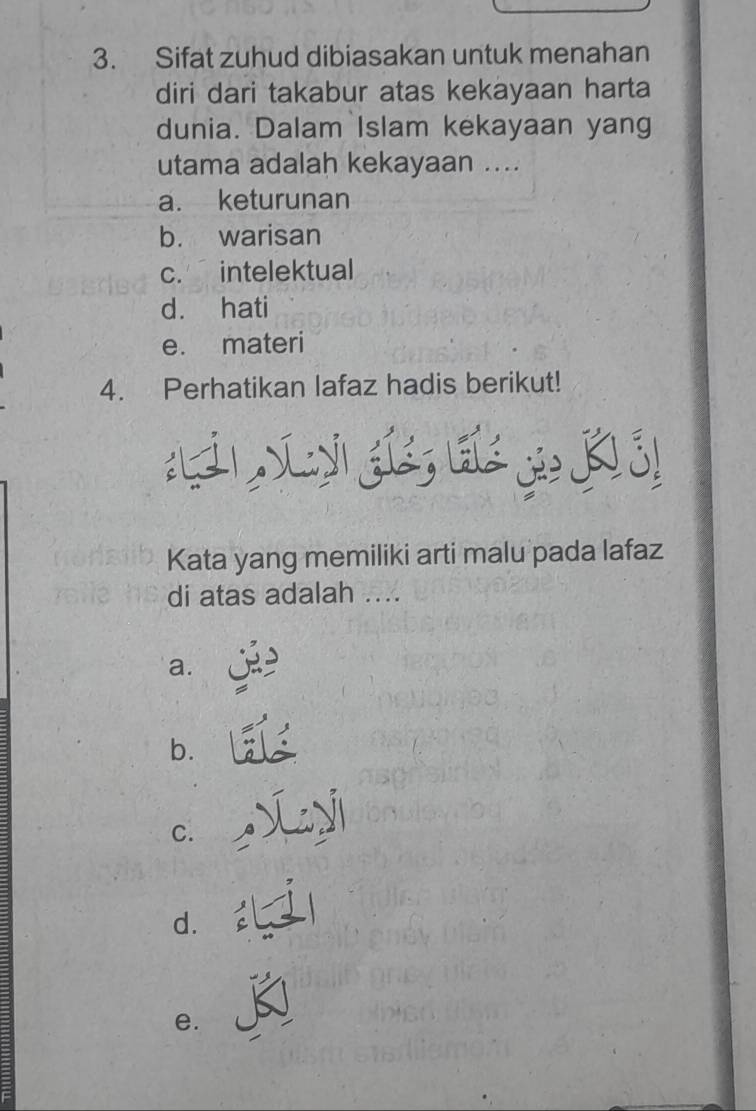 3. Sifat zuhud dibiasakan untuk menahan
diri dari takabur atas kekayaan harta
dunia. Dalam Islam kekayaan yang
utama adalah kekayaan ....
a. keturunan
b. warisan
c. intelektual
d. hati
e. materi
4. Perhatikan lafaz hadis berikut!
إِنَّ لِكُلِّ دِيْنٍ خُلُقًا وَخُلُقُ الْإِسْلَامِ الْحَيَاءُ
Kata yang memiliki arti malu pada lafaz
di atas adalah ....
a. دِيْنٍ
b. خُلُقًا
c. الْإِسْلَامِ
d. الْحَيَاءُ
e. لِكُلِّ